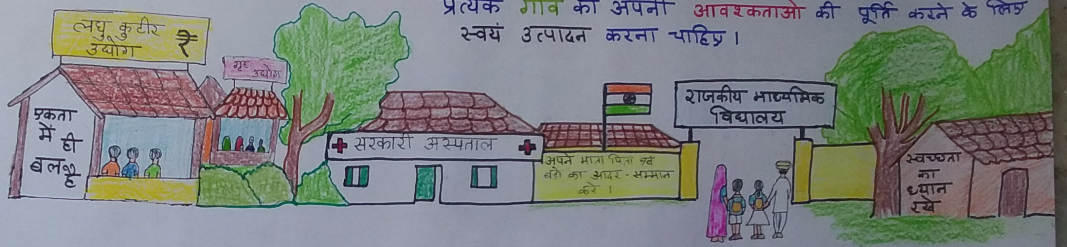 प्रत्येक गाँव को अपनी आवश्कताओं की पूर्ति करने के लिए
स्वयं उत्पादन करना चाहिए।
लघु कुटीर
उद्योग ₹
गृह
उद्योग
एकता
में ही
बल है
सरकारी अस्पताल
अपने माता पिता एवं
बड़ों का आदर-सम्मान
करें।
राजकीय माध्यमिक
विद्यालय
स्वच्छता
का
ध्यान
रखें